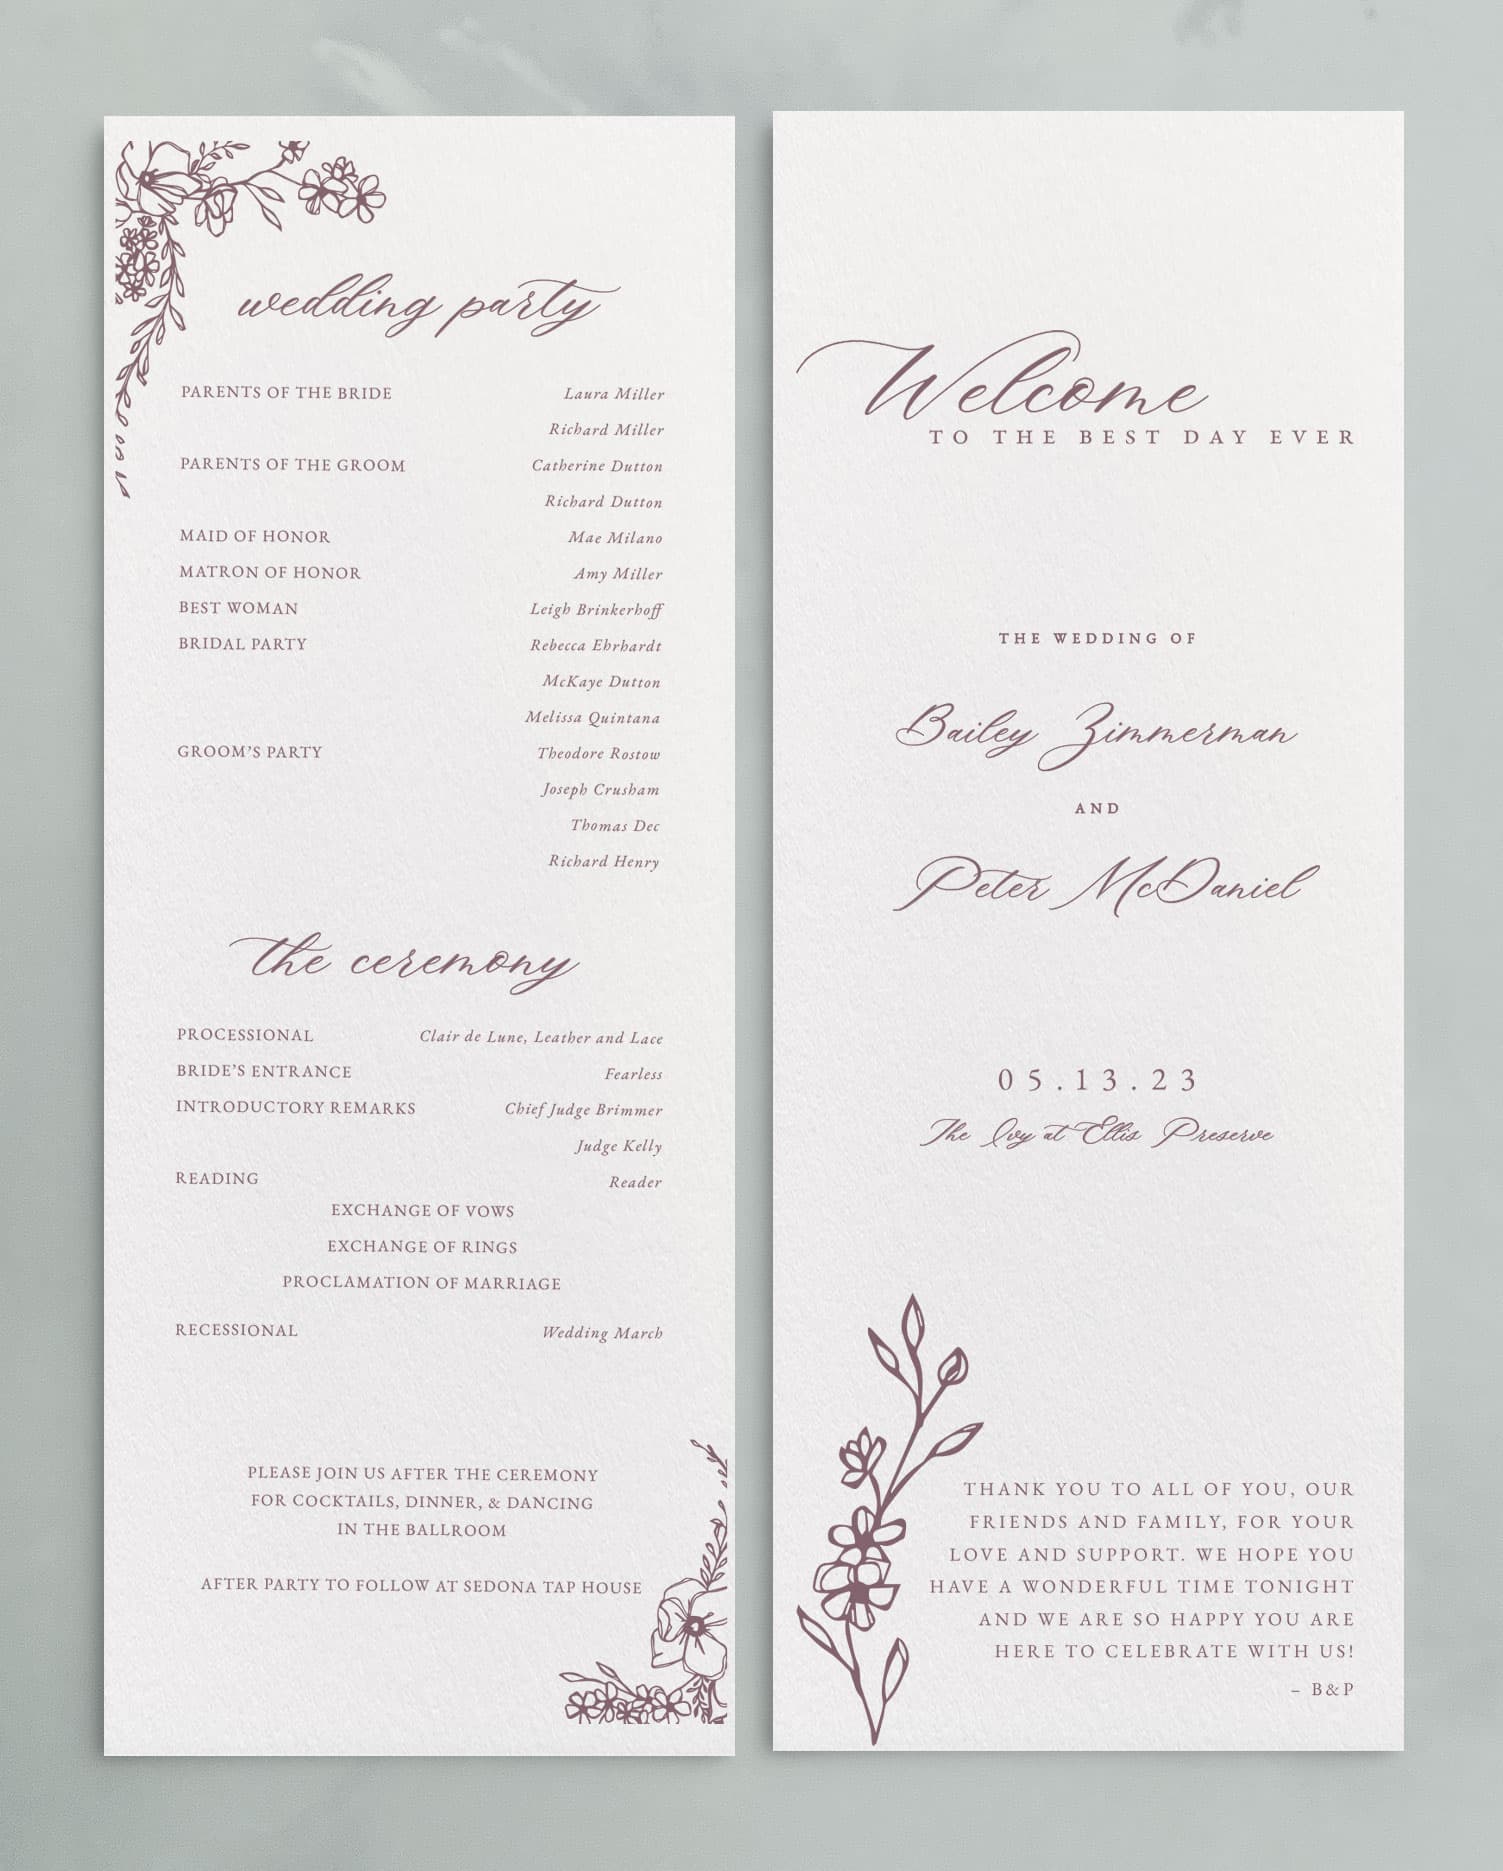 wedding party
PARENTS OF THE BRIDE Laura Miller
Richard Miller
PARENTS OF THE GROOM Catherine Dutton
Richard Dutton
MAID OF HONOR Mae Milano
MATRON OF HONOR Amy Miller
BEST WOMAN Leigh Brinkerhoff
BRIDAL PARTY Rebecca Ehrhardt
McKaye Dutton
Melissa Quintana
GROOM'S PARTY Theodore Rostow
Joseph Crusham
Thomas Dec
Richard Henry
the ceremony
PROCESSIONAL Clair de Lune, Leather and Lace
BRIDE'S ENTRANCE Fearless
INTRODUCTORY REMARKS Chief Judge Brimmer
Judge Kelly
READING Reader
EXCHANGE OF VOWS
EXCHANGE OF RINGS
PROCLAMATION OF MARRIAGE
RECESSIONAL Wedding March
PLEASE JOIN US AFTER THE CEREMONY
FOR COCKTAILS, DINNER, & DANCING
IN THE BALLROOM
AFTER PARTY TO FOLLOW AT SEDONA TAP HOUSE
Welcome
TO THE BEST DAY EVER
THE WEDDING OF
Bailey Zimmerman
AND
Peter McDaniel
05.13.23
The Ivy at Ellis Preserve
THANK YOU TO ALL OF YOU, OUR
FRIENDS AND FAMILY, FOR YOUR
LOVE AND SUPPORT. WE HOPE YOU
HAVE A WONDERFUL TIME TONIGHT
AND WE ARE SO HAPPY YOU ARE
HERE TO CELEBRATE WITH US!
– B&P